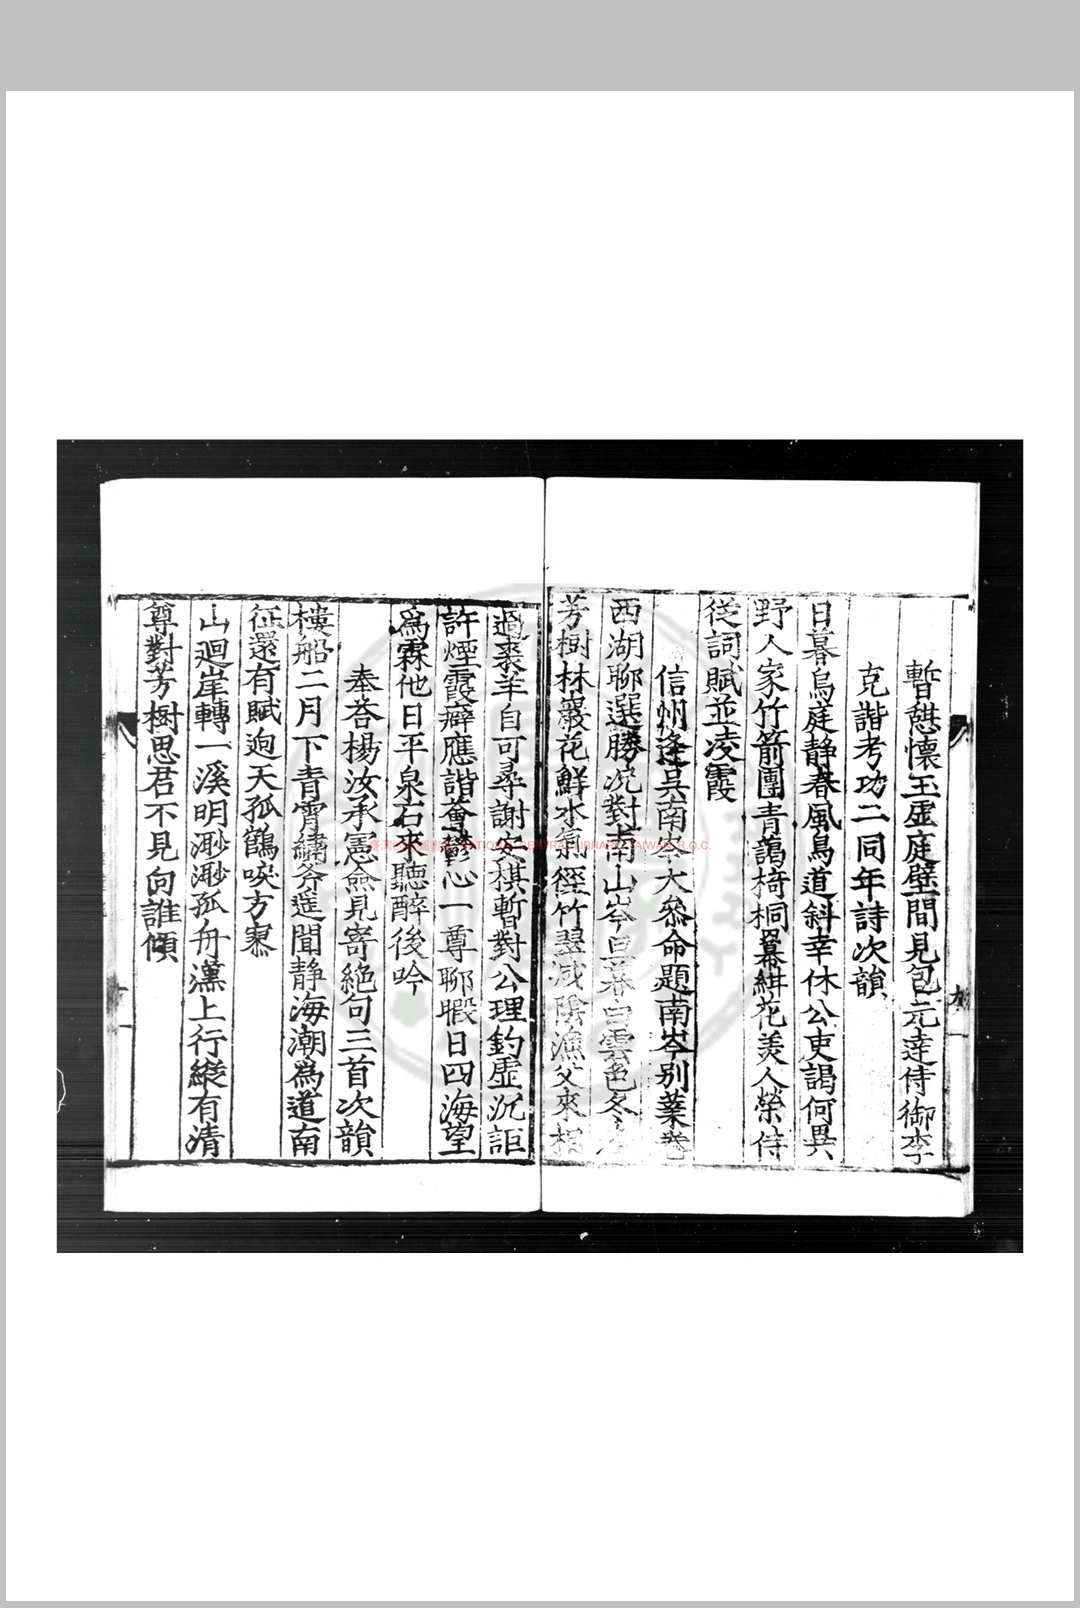 暫憇懷玉虛庭壁間見包元達侍御李
克諧考功二同年詩次韻
日暮鳥庭静春風鳥道斜幸休公吏謁何異
野人家竹箭團青藹椅桐羃緝花羡人榮侍
從詞賦並凌霞
信州逢吳南岑大叅命題南岑別業卷
西湖聊選勝況對南山岑旦春白雲色冬
芳樹林巖花鮮水氣徑竹翠減陰漁父來相
過裘羊自可尋謝安棋暫對公理釣虛沉詎
許煙霞癖應諧薈鬱心一尊聊暇日四海望
爲霖他日平泉石來聽醉後吟
奉荅楊汝承憲僉見寄絶句三首次韻
樓船二月下青霄繡斧遥聞静海潮爲道南
征還有賦逈天孤鶴唳方寒
山迴崖轉一溪明渺渺孤舟灘上行縱有清
尊對芳樹思君不見向誰傾
NATIONAL CENTRAL LIBRARY, TAIWAN, R.O.C.